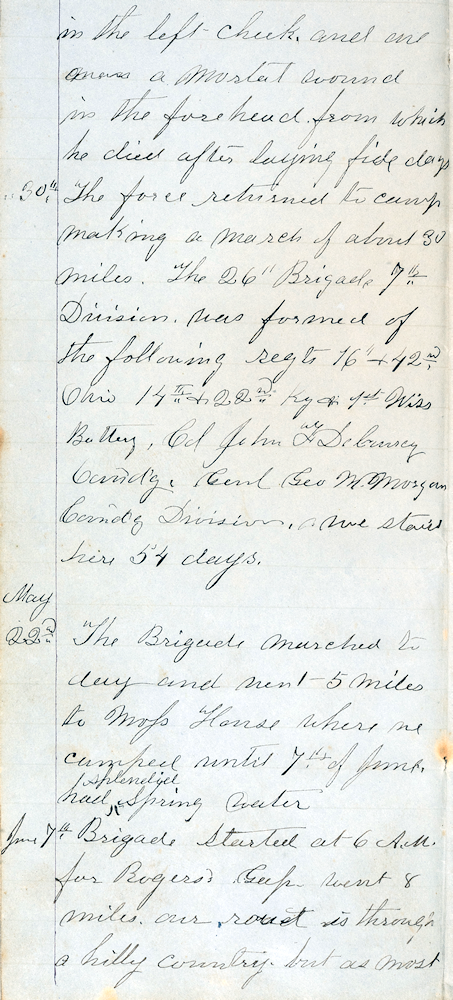 in the left cheek. and one
a mortal wound
in the forehead. from which
he died after laying five days
30th. The force returned to camp
making a march of about 30
miles. The 26" Brigade 7th
Division. was formed of
the following regts 16" + 42nd
Ohio 14th + 22nd Ky + 1st Wiss
Battery, Col John F DeCourcy
Comd'g. Genl Geo W. Morgan
Comd'g Division. we stayed
here 54 days.
May
22nd The Brigade marched to
day and went 5 miles
to Moss House where we
camped until 7th of June.
splendid
had spring water
June 7th Brigade started at 6 A.M.
for Rogers Gap. went 8
miles. our rout is through
a hilly country. but as most